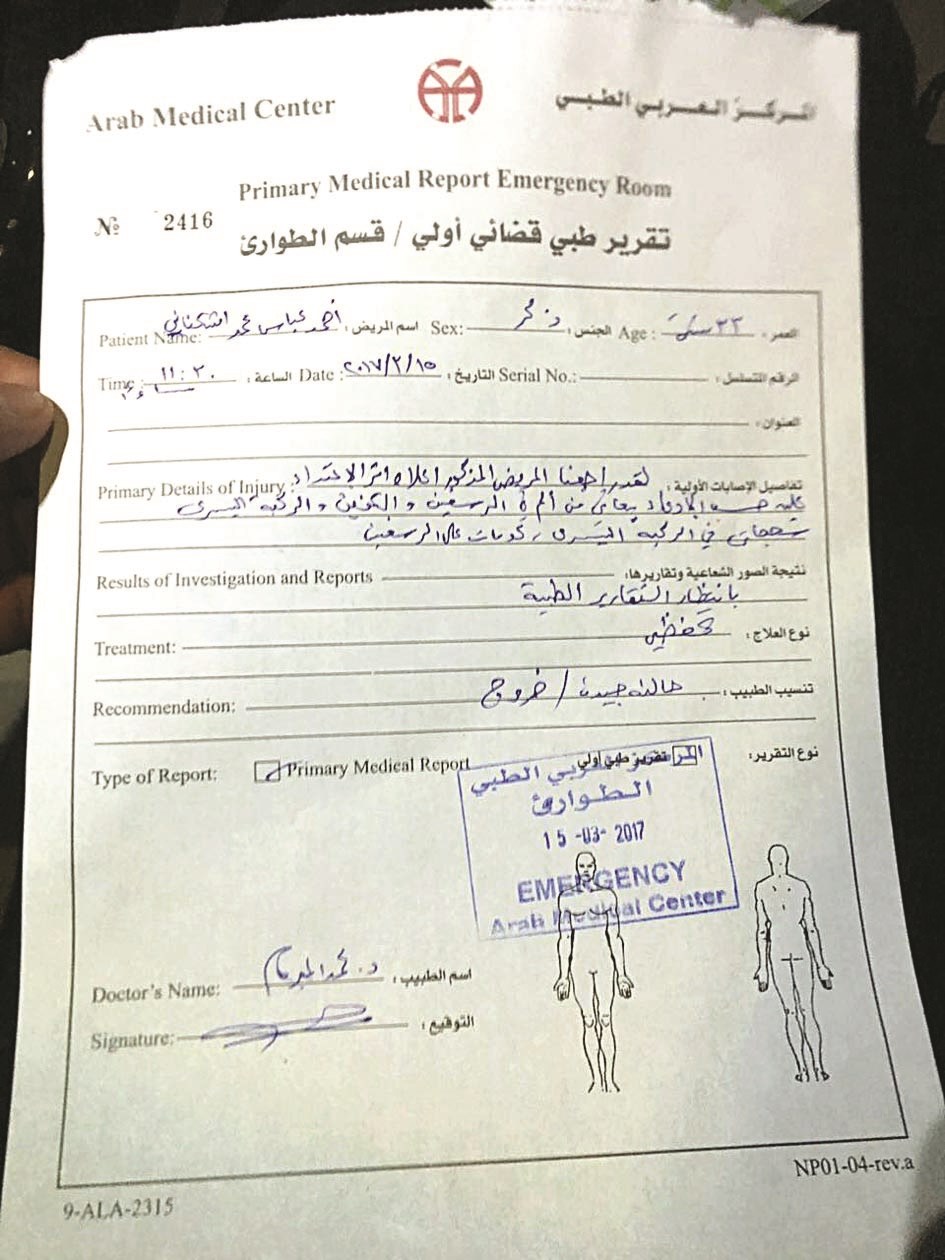 Arab Medical Center
المركز العربي الطبي
Primary Medical Report Emergency Room
№ 2416
تقرير طبي قضائي أولي / قسم الطوارئ
Patient Name: احمد عباس محمد اشكناني اسم المريض: Sex: ذكر الجنس: Age: ٣٣ سنة العمر:
Time: ١١:٣٠ مساءً الساعة: Date: ٢٠١٧/٣/١٥ التاريخ: Serial No.: الرقم المتسلسل:
العنوان:
Primary Details of Injury: لقد راجعنا المريض المذكور اعلاه اثر الاعتداء تفاصيل الإصابات الأولية:
عليه حسب الإفادة يعاني من ألم في الرسغين و الكتفين و الركبة اليسرى
سحجات في الركبة اليسرى، كدمات على الرسغين
Results of Investigation and Reports نتيجة الصور الشعاعية وتقاريرها:
بانتظار التقارير الطبية
Treatment: تحفظي نوع العلاج:
Recommendation: حالته جيدة / خروج تنسيب الطبيب:
Type of Report: Primary Medical Report تقرير طبي أولي نوع التقرير:
المركز العربي الطبي
الطوارئ
15 -03- 2017
EMERGENCY
Arab Medical Center
Doctor's Name: د. محمد اسم الطبيب:
Signature: التوقيع:
NP01-04-rev.a
9-ALA-2315